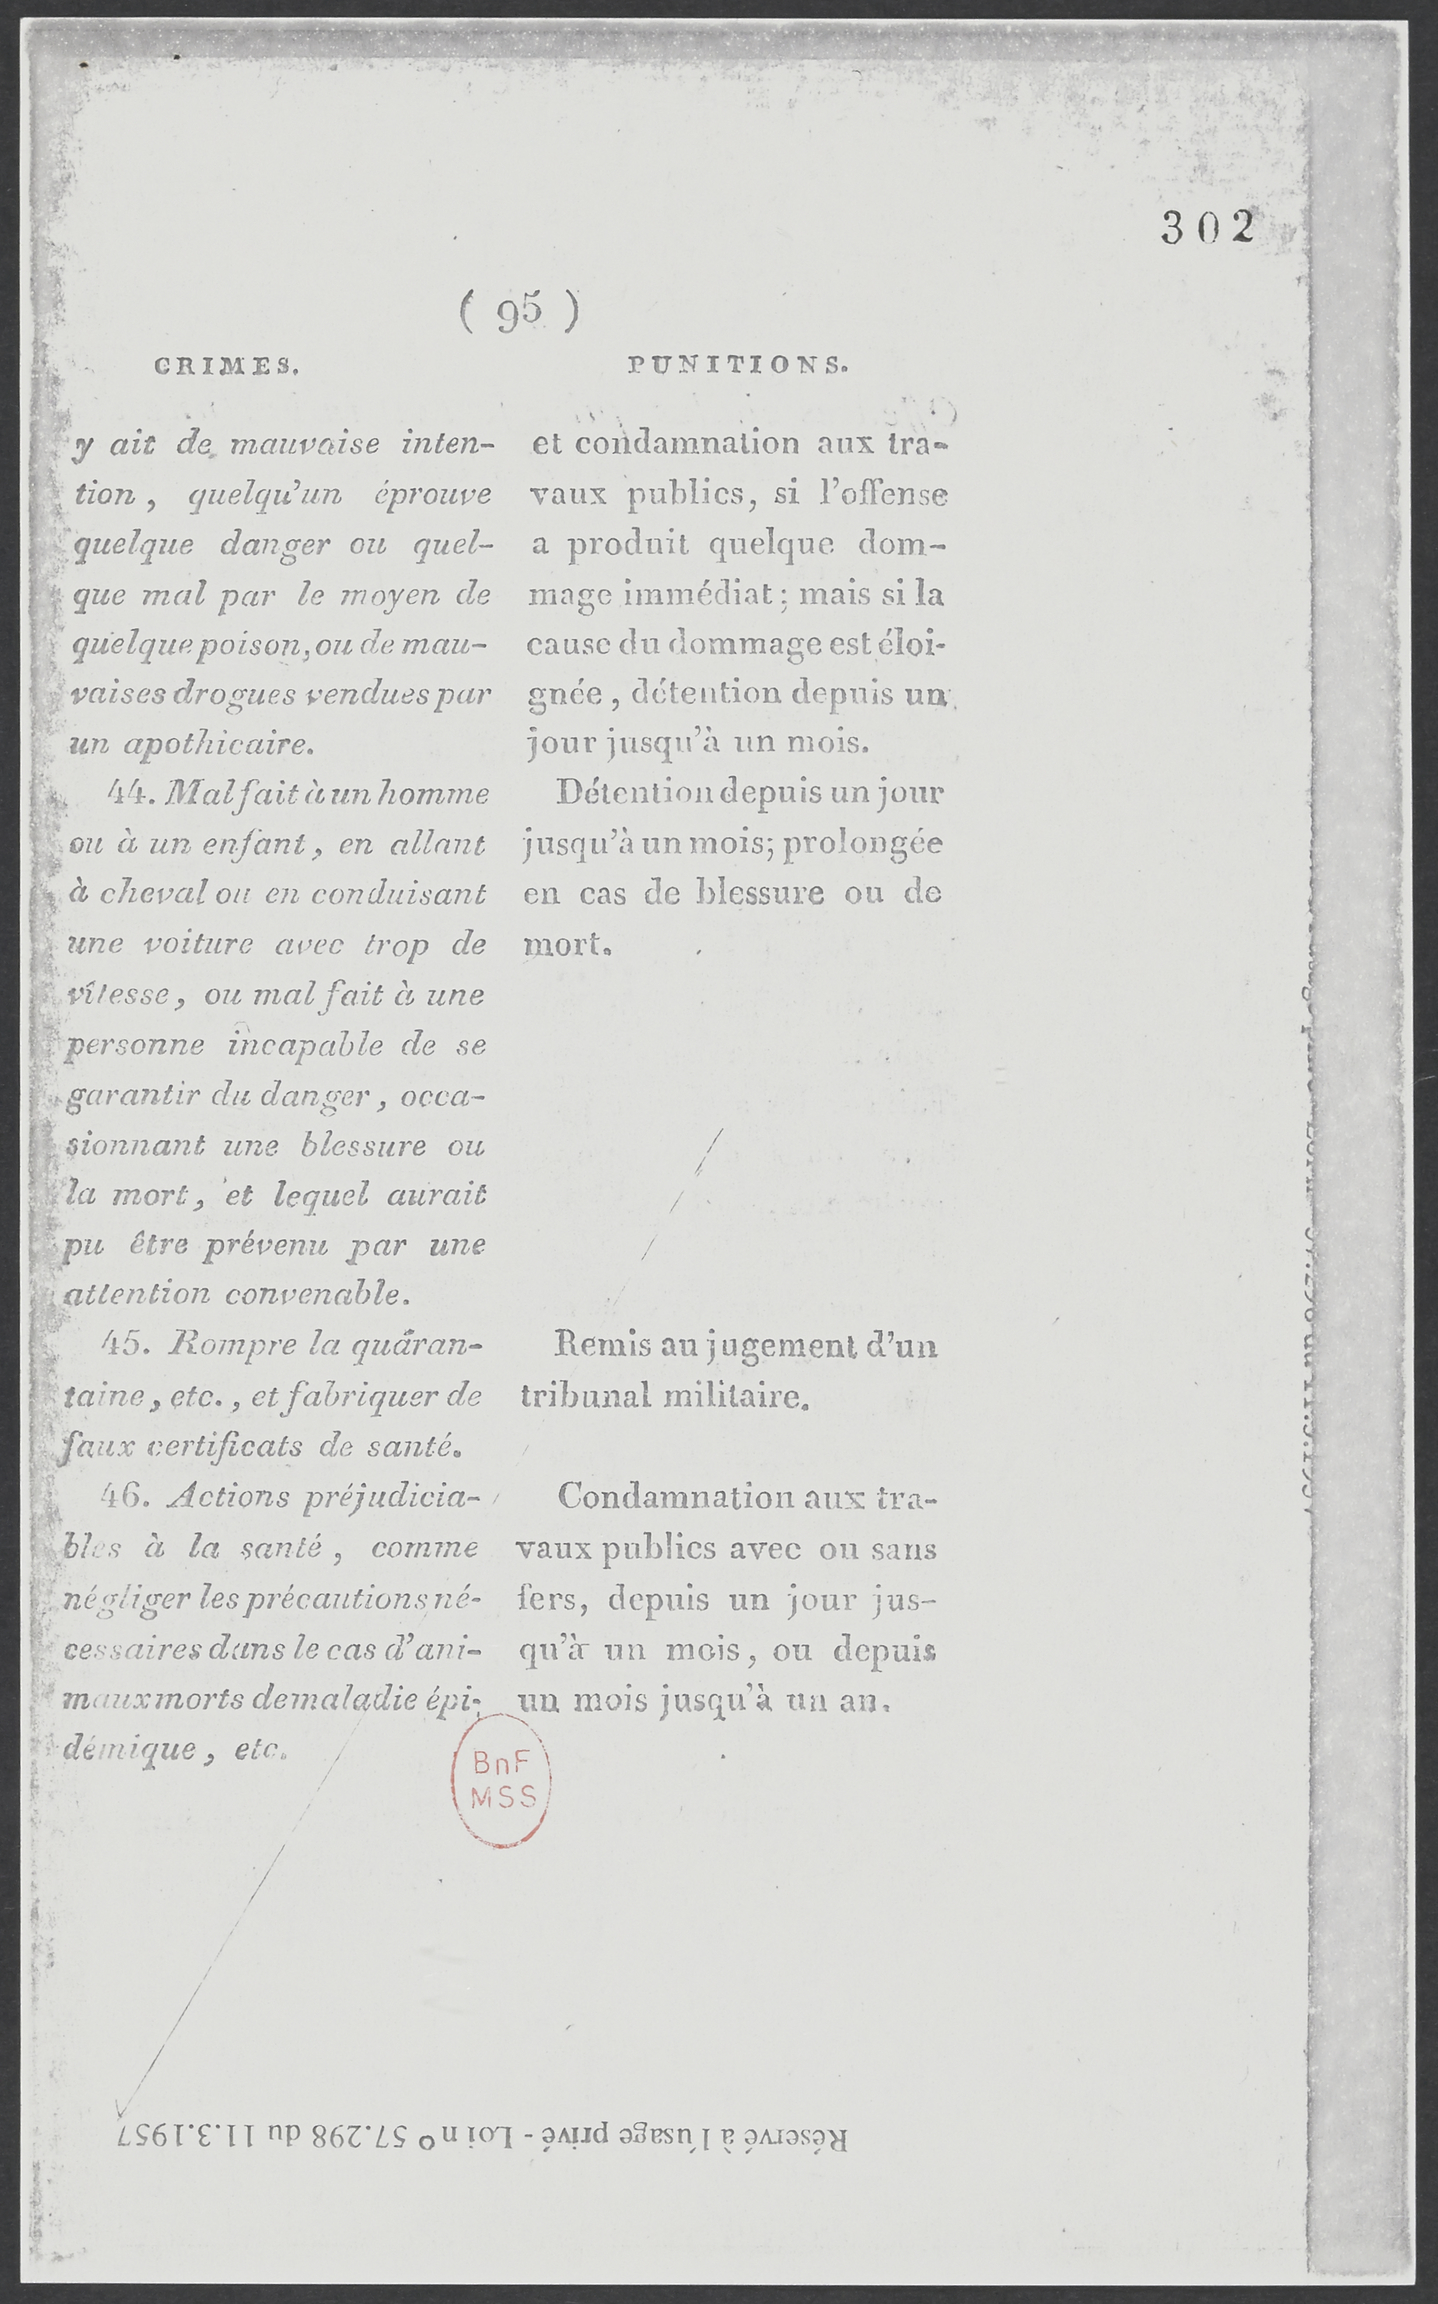 302
( 95 )
CRIMES.
y ait de mauvaise inten-
tion, quelqu'un éprouve
quelque danger ou quel-
que mal par le moyen de
quelque poison, ou de mau-
vaises drogues vendues par
un apothicaire.
44. Mal fait à un homme
ou à un enfant, en allant
à cheval ou en conduisant
une voiture avec trop de
vîtesse, ou mal fait à une
personne incapable de se
garantir du danger, occa-
sionnant une blessure ou
la mort, et lequel aurait
pu être prévenu par une
attention convenable.
45. Rompre la quaran-
taine, etc., et fabriquer de
faux certificats de santé.
46. Actions préjudicia-
bles à la santé, comme
négliger les précautions né-
cessaires dans le cas d'ani-
maux morts de maladie épi-
démique, etc.
PUNITIONS.
et condamnation aux tra-
vaux publics, si l'offense
a produit quelque dom-
mage immédiat; mais si la
cause du dommage est éloi-
gnée, détention depuis un
jour jusqu'à un mois.
Détention depuis un jour
jusqu'à un mois; prolongée
en cas de blessure ou de
mort.
Remis au jugement d'un
tribunal militaire.
Condamnation aux tra-
vaux publics avec ou sans
fers, depuis un jour jus-
qu'à un mois, ou depuis
un mois jusqu'à un an.
BnF
MSS
Réservé à l'usage privé - Loi n° 57.298 du 11.3.1957